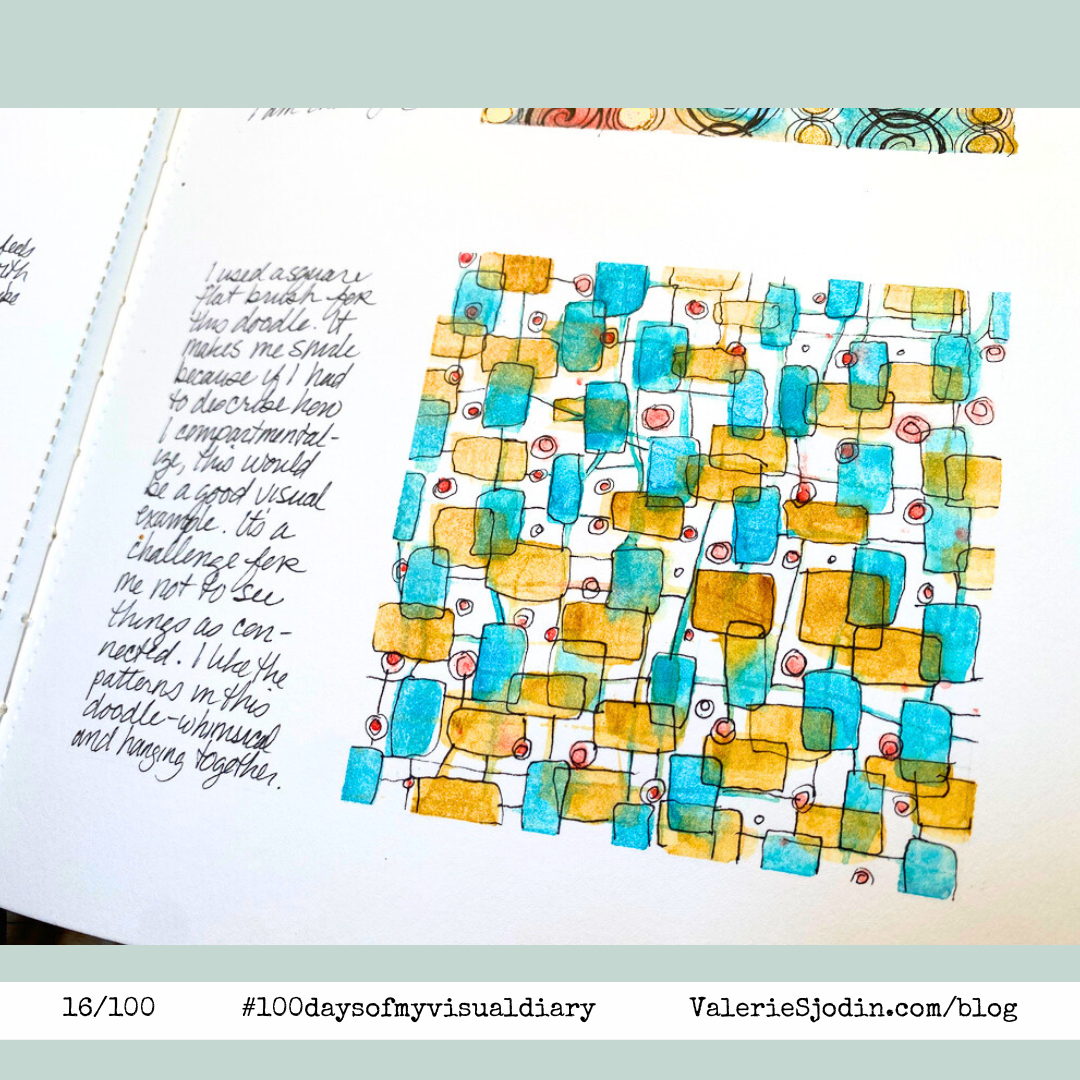 I am
feels
with
I used a square
flat brush for
this doodle. It
makes me smile
because if I had
to describe how
I compartmental-
ize, this would
be a good visual
example. It's a
challenge for
me not to see
things as con-
nected. I like the
patterns in this
doodle-whimsical
and hanging together.
16/100 #100daysofmyvisualdiary ValerieSjodin.com/blog